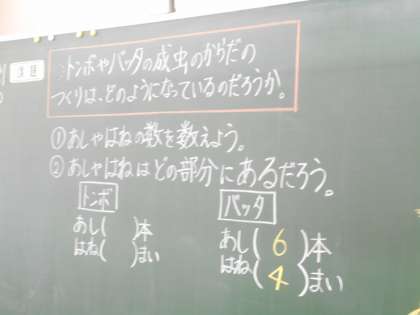 課題
トンボやバッタの成虫のからだの
つくりは、どのようになっているのだろうか。
①あしやはねの数を数えよう。
②あしやはねはどの部分にあるだろう。
トンボ
あし(　　)本
はね(　　)まい
バッタ
あし(6)本
はね(4)まい